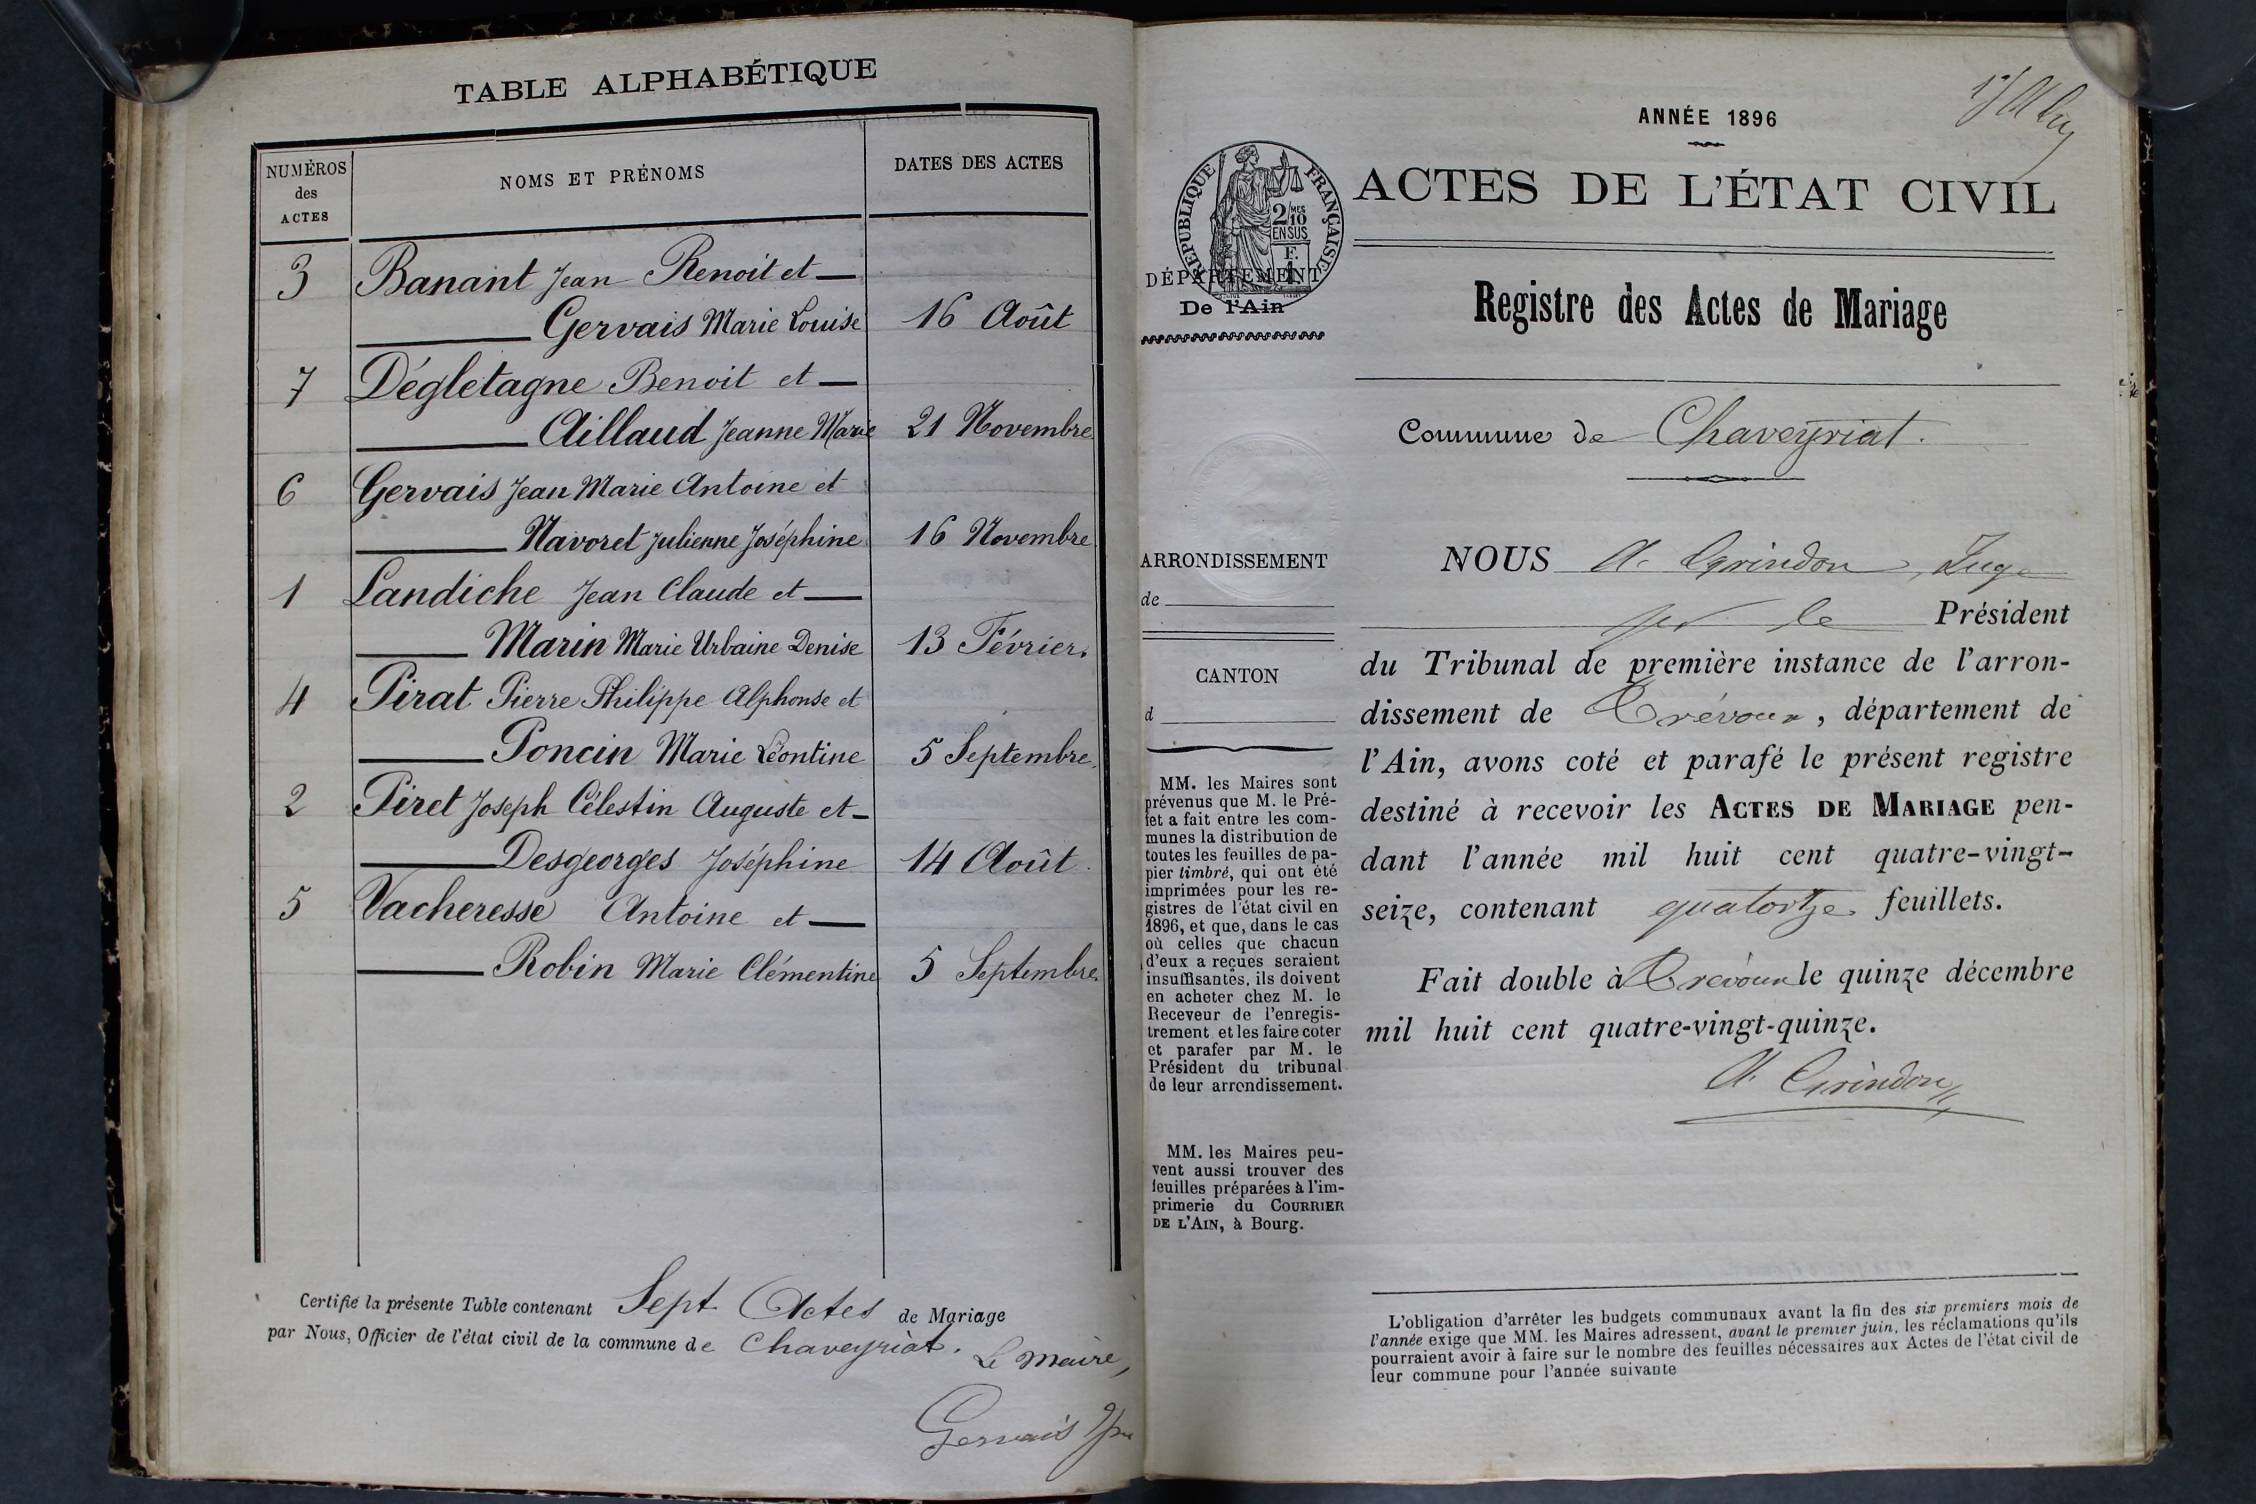 TABLE ALPHABÉTIQUE
NUMÉROS
des
ACTES
NOMS ET PRÉNOMS
DATES DES ACTES
3 Banant Jean Renoit et
Gervais Marie Louise 16 Août
7 Dégletagne Benoit et
Aillaud Jeanne Marie 21 Novembre
6 Gervais Jean Marie Antoine et
Navoret Julienne Joséphine 16 Novembre
1 Landiche Jean Claude et
Marin Marie Urbaine Denise 13 Février
4 Pirat Pierre Philippe Alphonse et
Poncin Marie Léontine 5 Septembre
2 Piret Joseph Célestin Auguste et
Desgeorges Joséphine 14 Août
5 Vacheresse Antoine et
Robin Marie Clémentine 5 Septembre
Certifié la présente Table contenant Sept Actes de Mariage
par Nous, Officier de l'état civil de la commune de Chaveyriat.
Le Maire,
Gervais
ANNÉE 1896
ACTES DE L'ÉTAT CIVIL
RÉPUBLIQUE FRANÇAISE
2/10 MES
EN SUS
F.
1
DÉPARTEMENT
De l'Ain
Registre des Actes de Mariage
Commune de Chaveyriat.
ARRONDISSEMENT
de
CANTON
d
MM. les Maires sont
prévenus que M. le Pré-
fet a fait entre les com-
munes la distribution de
toutes les feuilles de pa-
pier timbré, qui ont été
imprimées pour les re-
gistres de l'état civil en
1896, et que, dans le cas
où celles que chacun
d'eux a reçues seraient
insuffisantes, ils doivent
en acheter chez M. le
Receveur de l'enregis-
trement et les faire coter
et parafer par M. le
Président du tribunal
de leur arrondissement.
MM. les Maires peu-
vent aussi trouver des
feuilles préparées à l'im-
primerie du COURRIER
DE L'AIN, à Bourg.
NOUS A. Grindon, Juge
pr le Président
du Tribunal de première instance de l'arron-
dissement de Trévoux, département de
l'Ain, avons coté et parafé le présent registre
destiné à recevoir les ACTES DE MARIAGE pen-
dant l'année mil huit cent quatre-vingt-
seize, contenant quatorze feuillets.
Fait double à Trévoux le quinze décembre
mil huit cent quatre-vingt-quinze.
A. Grindon
L'obligation d'arrêter les budgets communaux avant la fin des six premiers mois de
l'année exige que MM. les Maires adressent, avant le premier juin, les réclamations qu'ils
pourraient avoir à faire sur le nombre des feuilles nécessaires aux Actes de l'état civil de
leur commune pour l'année suivante